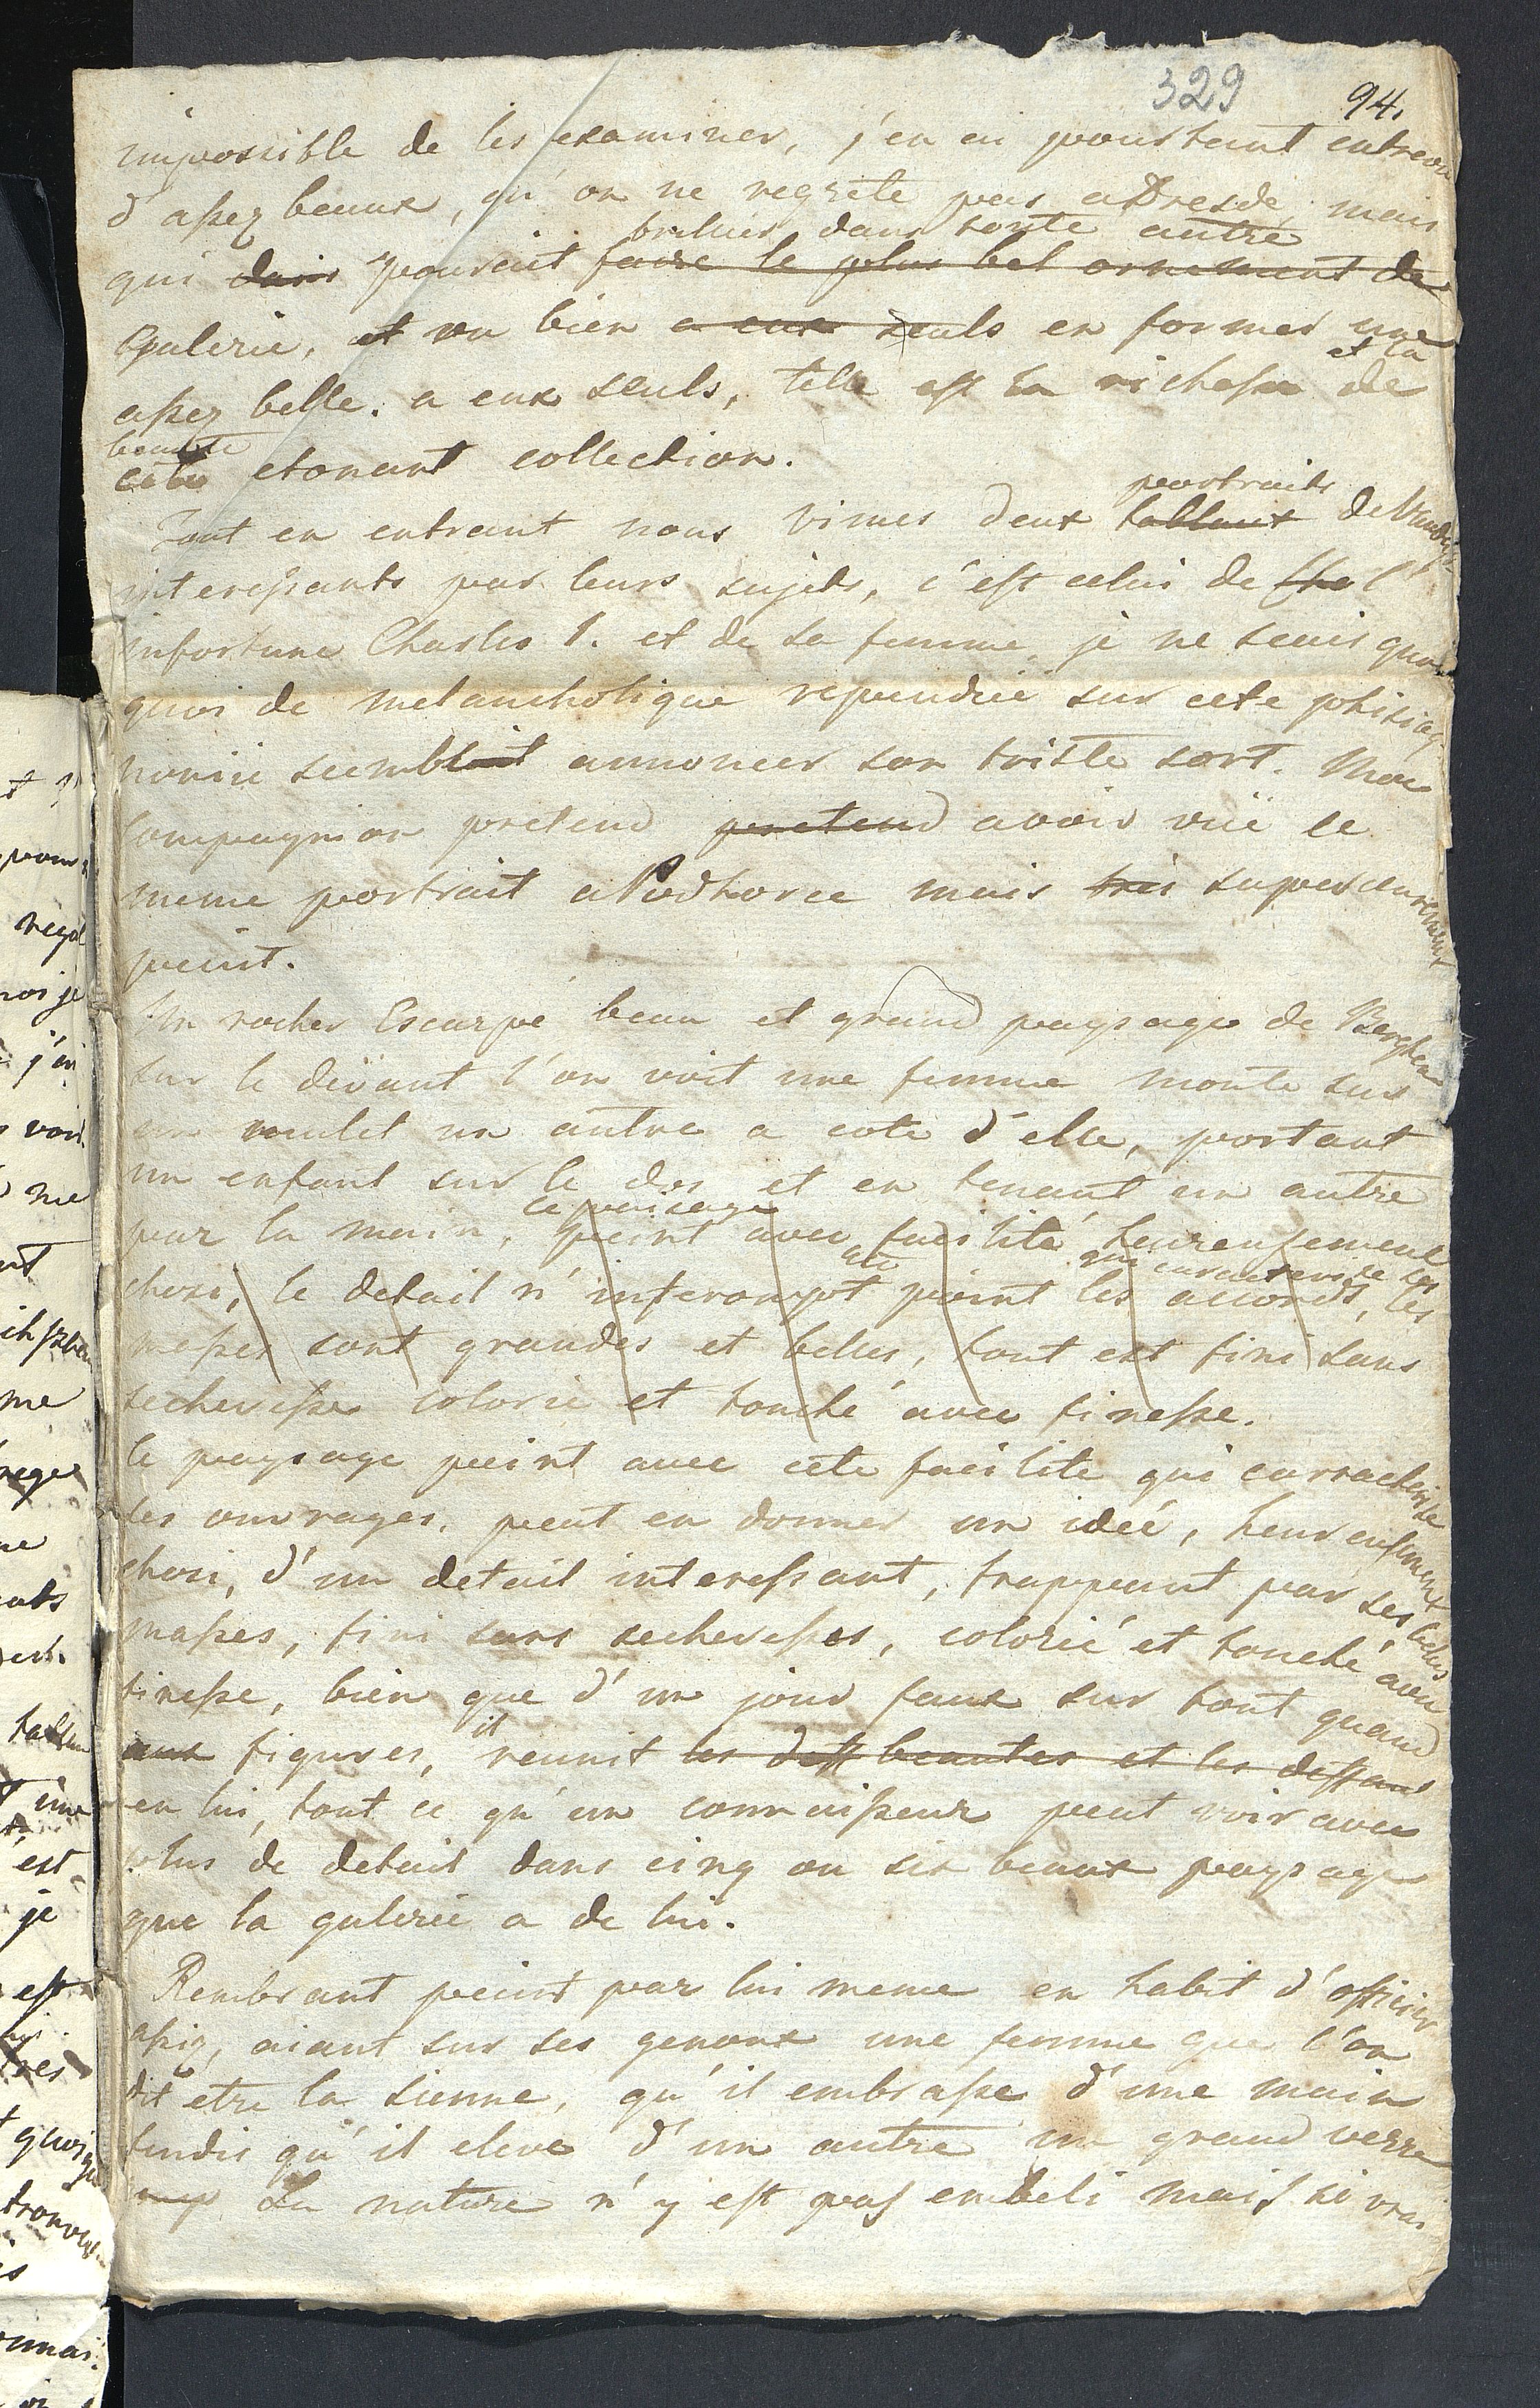 329 94.
impossible de les examiner, j'en ai pourtant entrevu
d'assez beaux, qu'on ne regrete pas a Dresde, mais
brilier dans toute autre
qui dans pouroit faire le plus bel ornement de
Galerie, et ou bien a eux seuls en former une
et la
assez belle. a eux seuls, telle est la richesse de
beauté
cete etonant collection.
portraits
Tout en entrant nous vimes deux tableaux de Vandyk
interessants par leurs sujets, c'est celui de l'
infortune Charles 1. et de sa femme, je ne scais quoi
quoi de melancholique rependüe sur cete phisiog
nomie sembloit annoncer son triste sort. Mon
compagnion pretend pretend avoir vüe le
meme portrait a Podhorce mais tres superieurement
peint.
Un rocher Escarpé beau et grand paysage de Berghem
sur le devant l'on voit une femme monte sur
un mulet un autre a cote d'elle, portant
un enfant sur le dos et en tenant un autre
ce paisage
par la main, peint avec facilité, heureusement
qui caracterise ses
choisi, le detail n'interompt point les accords, les
messes sont grandes et belles, tout est fini sans
secheresse colorie et touché avec finesse.
le paysage peint avec cete facilite qui carracterise
ses ouvrages, peut en donner un idée, heureusement
choisi, d'un detail interessant, frappant par ses belles
masses, fini sans secheresses, colorié et touché avec
finesse, bien que d'un jour faux sur tout quand
il
aux figures, reunit les deff beautes et les deffauts
en lui, tout ce qu'un connaisseur peut voir avec
plus de detail dans cinq ou six beaux paysage
que la galerie a de lui.
Rembrant peint par lui meme en habit d'officier
assis, aiant sur ses genoux une femme que l'on
dit etre la sienne, qu'il embrasse d'une main
tandis qu'il eleve d'un autre un grand verre
La nature n'y est pas embeli mais si vrai